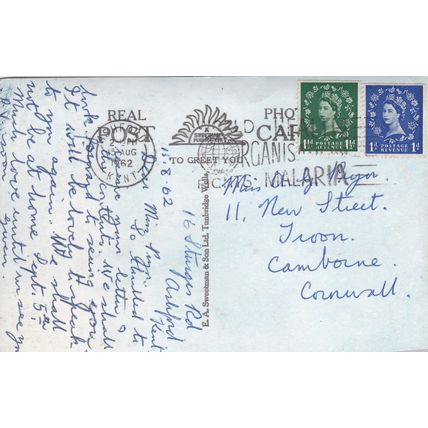 REAL
PHOTO
POST
CARD
A SUNSHINE SERIES
TO GREET YOU
ASHFORD
AUG
1962
KENT
WORLD
ORGANISATION
MALARIA
1½D POSTAGE REVENUE 1½D
1D POSTAGE REVENUE 1D
E. A. Sweetman & Son Ltd. Tunbridge Wells.
16 Sturges Rd
Ashford
Kent
11.8.62
Dear Miss
So thrilled to
have your letter &
contents. We shall
look forward to seeing you.
It will be lovely to speak
to you again. We shall
not be at home Sept. 5th
Much love until we see you
again.
Miss
11, New Street.
Troon.
Camborne.
Cornwall.